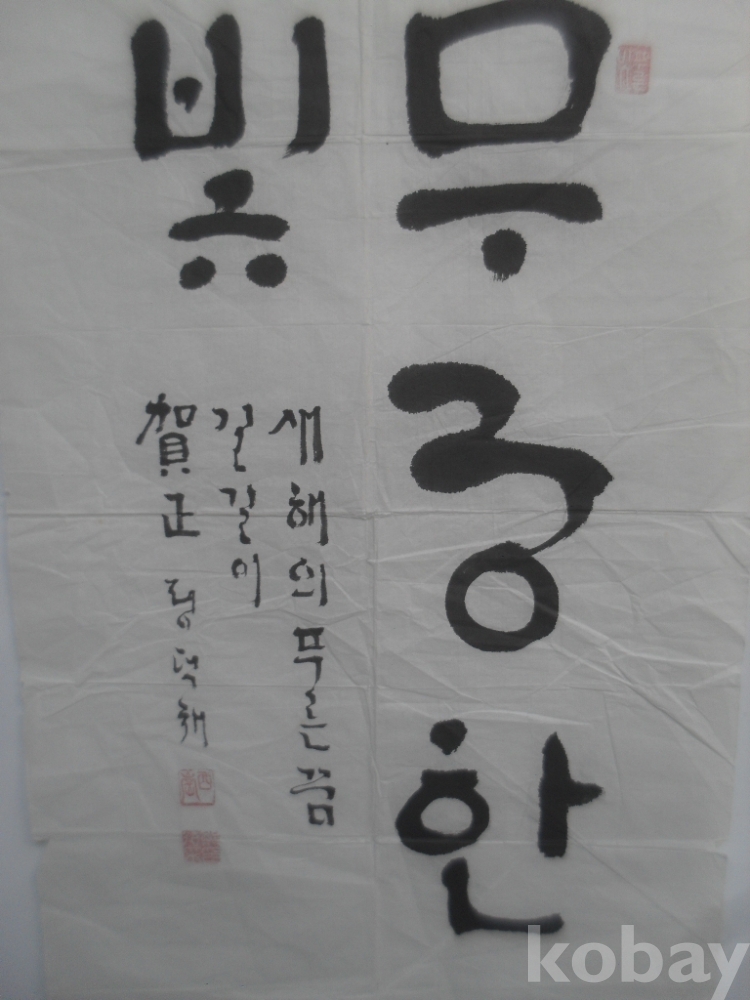 무궁한
빛
새해의 푸른 꿈
길길이
賀正
kobay